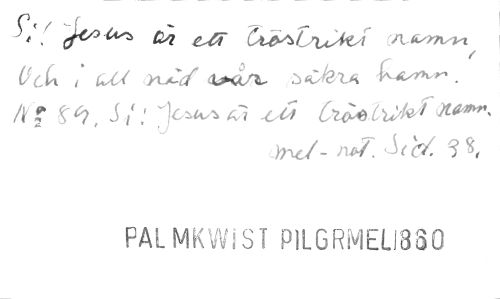 Si! Jesus är ett tröstrikt namn,
Och i all nöd vår säkra hamn.
No 89. Si! Jesus är ett tröstrikt namn.
mel-not. Sid. 38.
PALMKWIST PILGRMEL1860